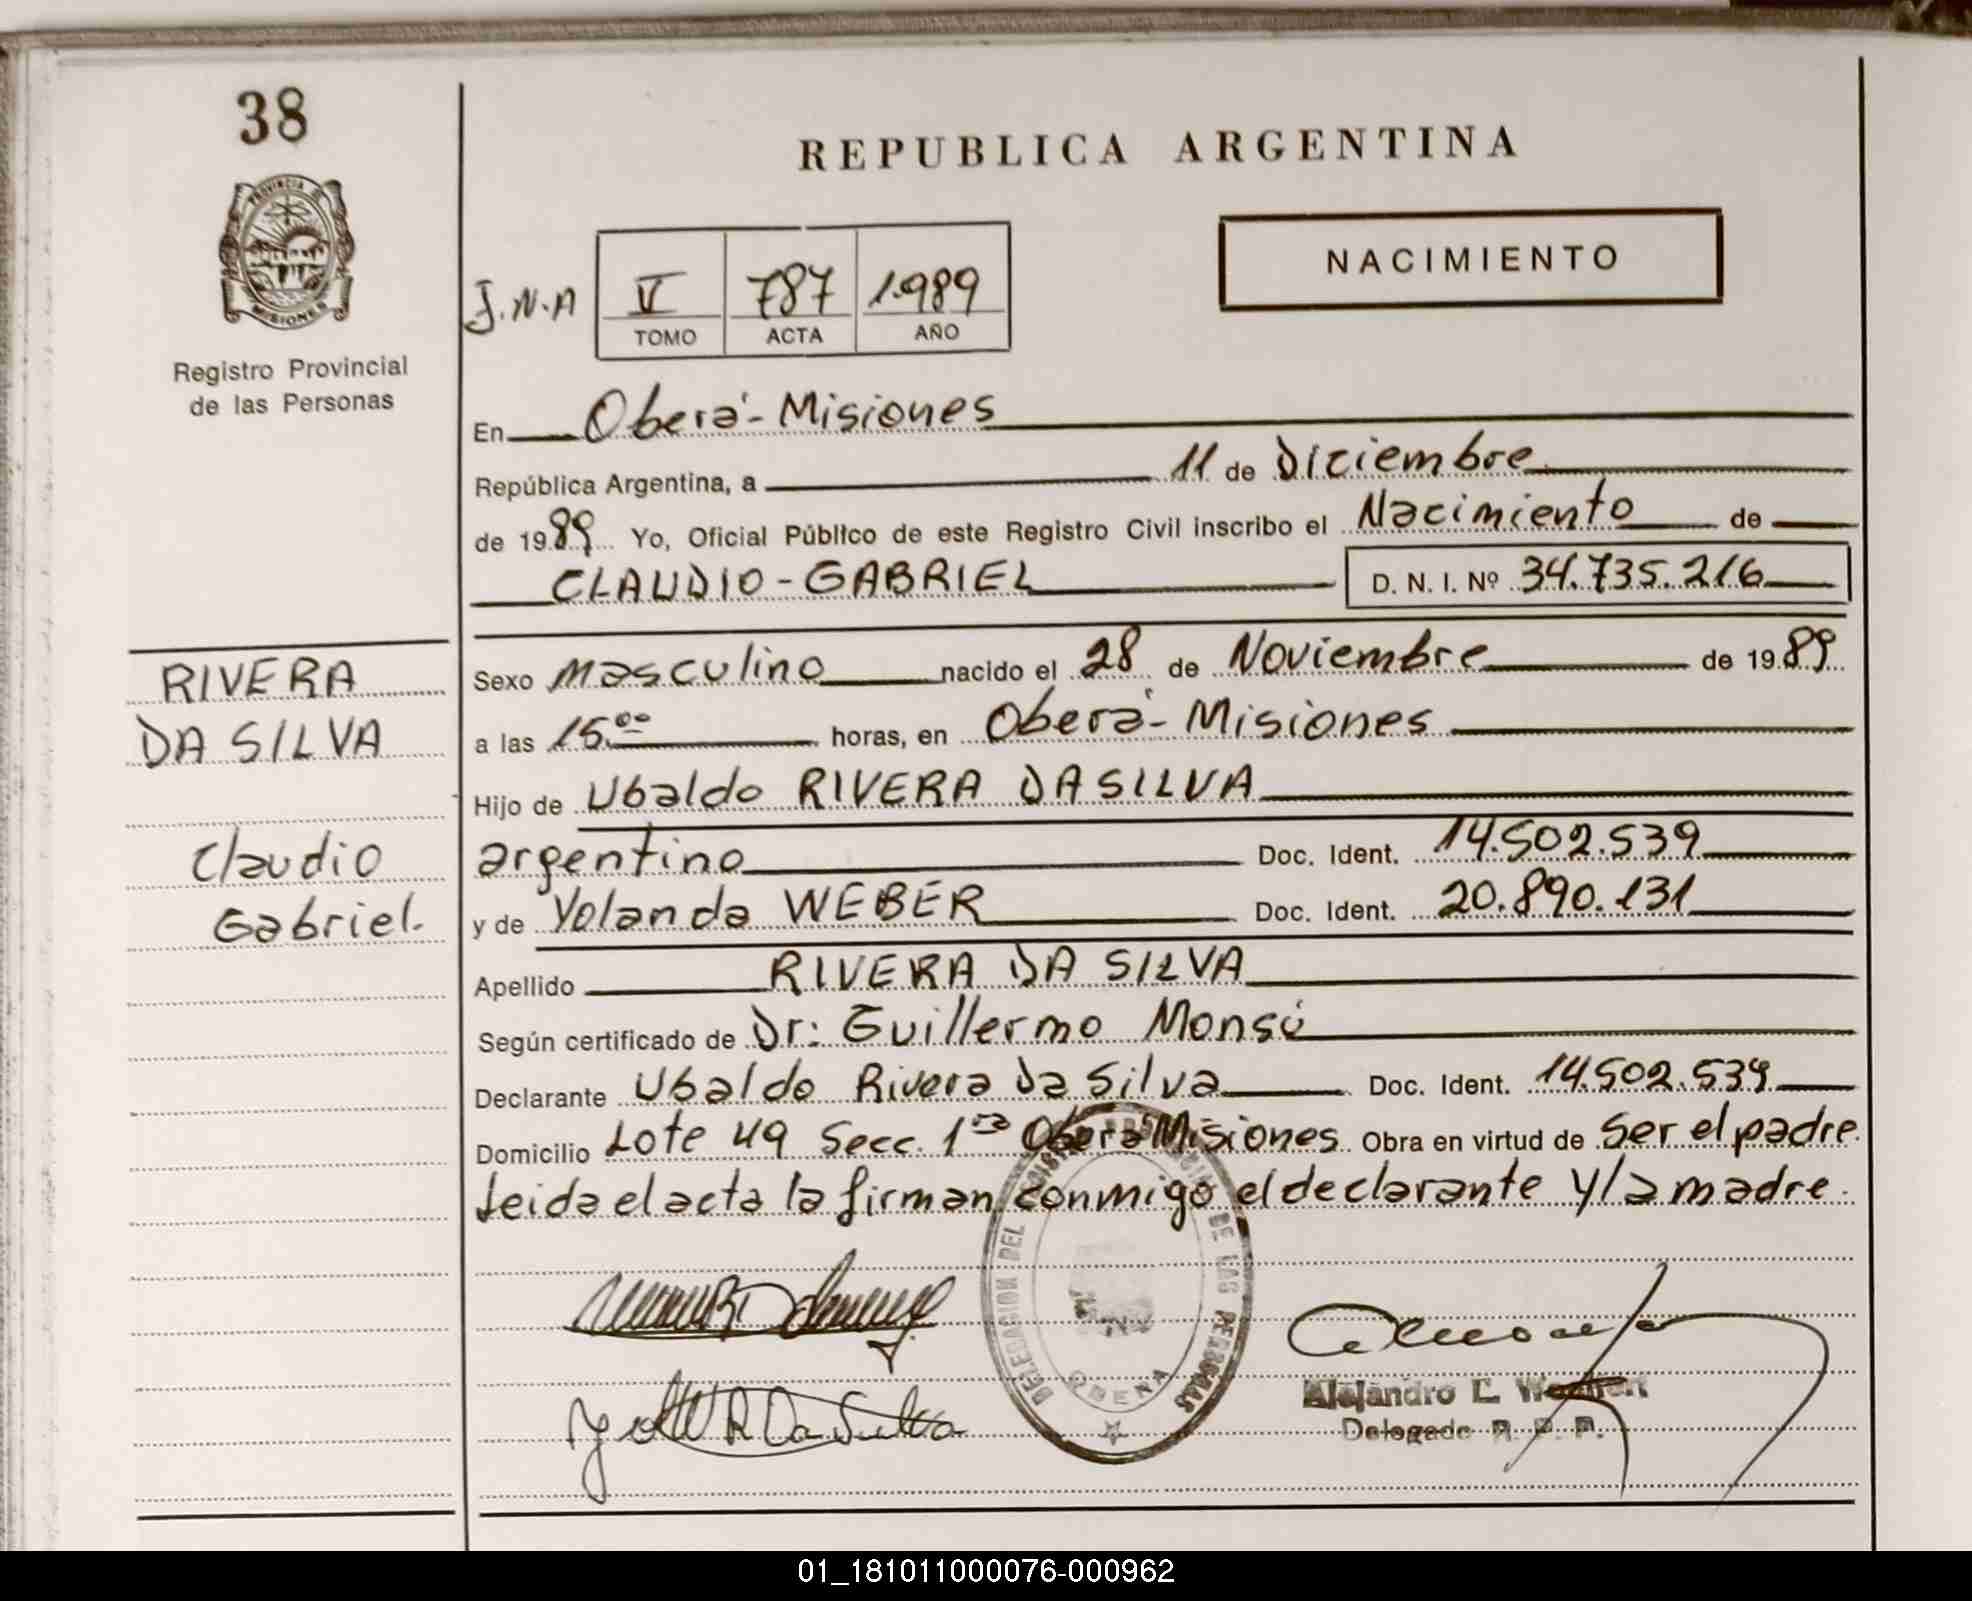 38
REPUBLICA ARGENTINA
PROVINCIA DE
MISIONES
Registro Provincial
de las Personas
NACIMIENTO
J.N.A V 787 1.989
TOMO ACTA AÑO
En Oberá - Misiones
República Argentina, a 11 de Diciembre
de 1989 Yo, Oficial Público de este Registro Civil inscribo el Nacimiento de
CLAUDIO - GABRIEL D. N. I. Nº 34.735.216
RIVERA
DA SILVA
Claudio
Gabriel.
Sexo masculino nacido el 28 de Noviembre de 1989
a las 15.00 horas, en Oberá - Misiones
Hijo de Ubaldo RIVERA DA SILVA
argentino Doc. Ident. 14.502.539
y de Yolanda WEBER Doc. Ident. 20.890.131
Apellido RIVERA DA SILVA
Según certificado de Dr: Guillermo Monsó
Declarante Ubaldo Rivera Da Silva Doc. Ident. 14.502.539
Domicilio Lote 49 Secc. 1ra Oberá Misiones Obra en virtud de Ser el padre
Leida el acta la firman conmigo el declarante y la madre.
DELEGACION DEL REGISTRO PROVINCIAL DE LAS PERSONAS
OBERA
Alejandro E.
Delegado R. P. P.
01_181011000076-000962